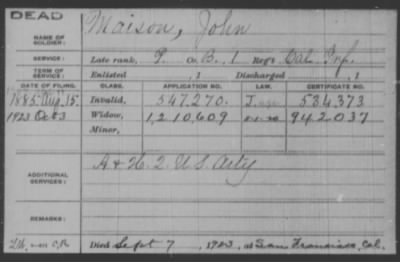 DEAD
NAME OF SOLDIER: Maison, John
SERVICE: Late rank, P. Co. B. 1 Reg't Cal. Inf.
TERM OF SERVICE: Enlisted , 1 Discharged , 1
DATE OF FILING. CLASS. APPLICATION NO. LAW. CERTIFICATE NO.
1885 Aug. 15. Invalid, 547.270. 534,373
1923 Oct 3 Widow, 1,210,609 942,037
Minor,
ADDITIONAL SERVICES: A & H. 2 U.S. Arty
REMARKS:
Died Sept 7, 1923, at San Francisco, Cal.